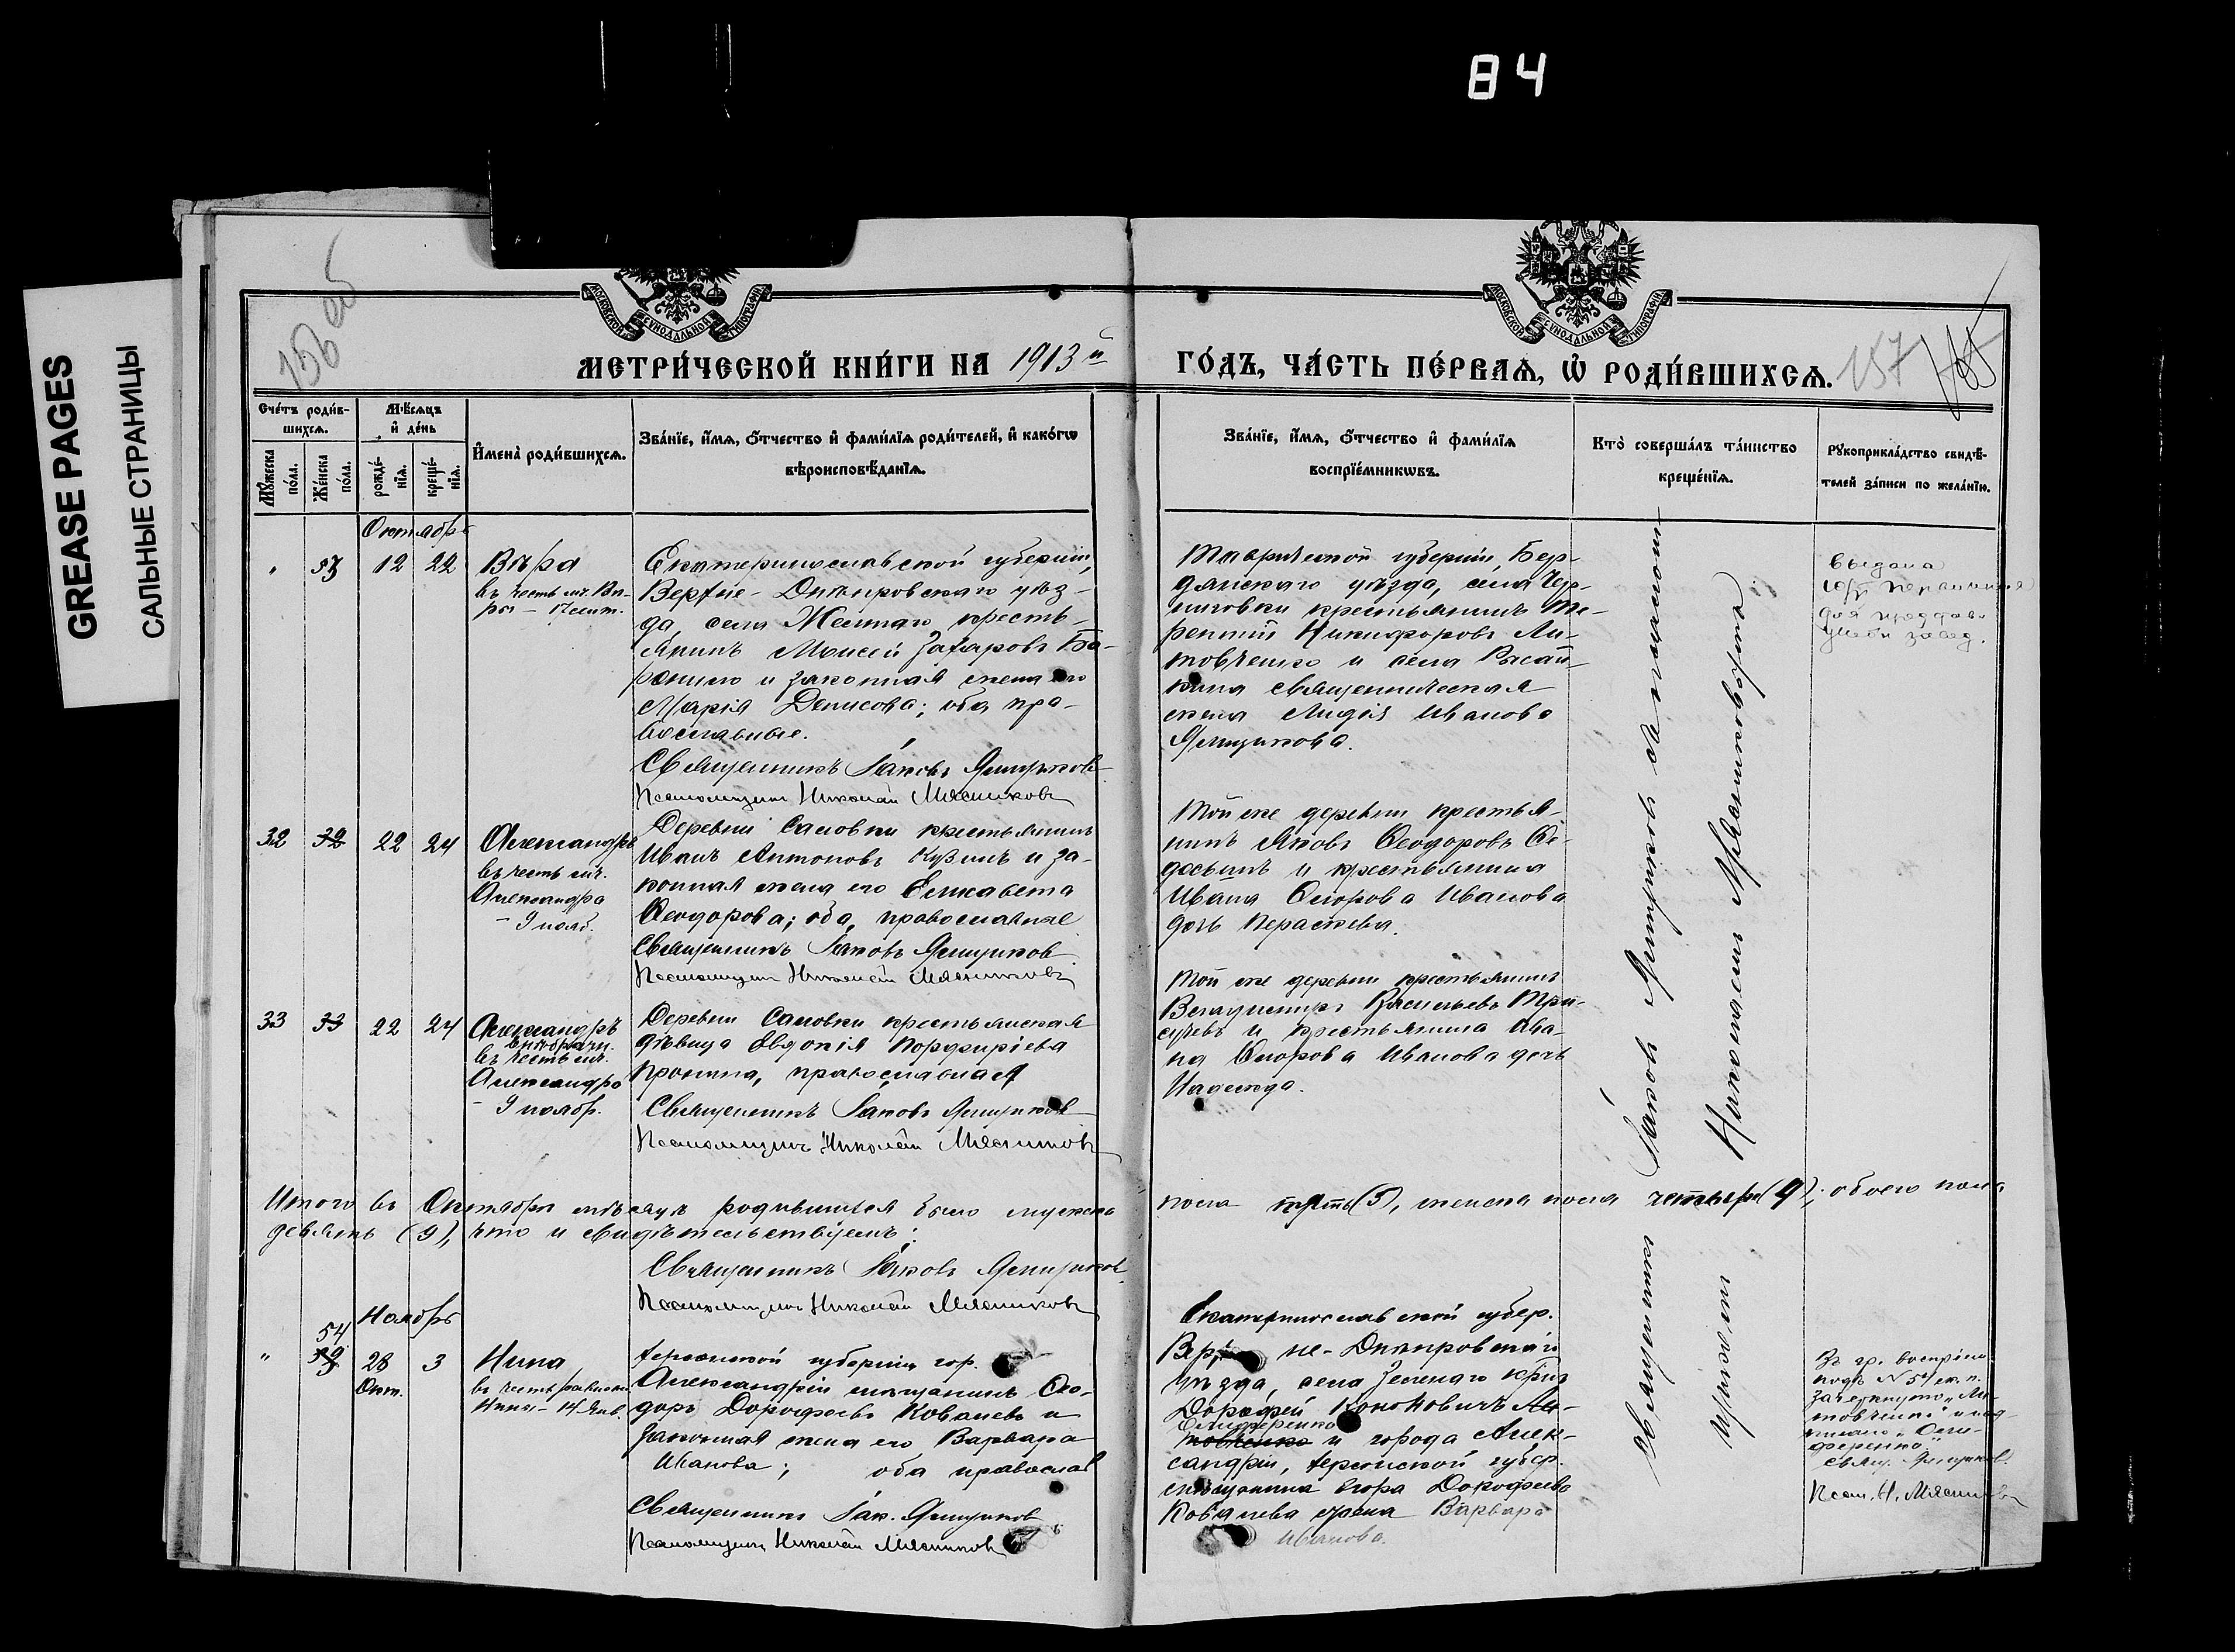 84
GREASE PAGES
САЛЬНЫЕ СТРАНИЦЫ
156 об
МЕТРИ́ЧЕСКОЙ КНИ́ГИ НА 1913й
ГО́ДЪ, ЧА́СТЬ ПЕ́РВАЯ, Ѡ РОДИ́ВШИХСЯ.
157
Сче́тъ роди́в-
шихся.
Мѣ́сяцъ
и де́нь
Мꙋжеска по́ла.
Же́нска по́ла.
рожде́-
нїя.
креще́-
нїя.
Имена̀ роди́вшихся.
Зва́нїе, и́мя, о́тчество и фами́лїя роди́телей, и како́гѡ
вѣроисповѣ́данїя.
Зва́нїе, и́мя, о́тчество и фами́лїя
воспрїе́мникѡвъ.
Кто̀ соверша́лъ та́инство
креще́нїя.
Рꙋкоприкла́дство свидѣ́-
телей за́писи по жела́нїю.
Октябрь
" 53 12 22 Вѣра
въ честь мч. Вѣ-
ры – 17 сент.
Екатеринославской губерніи,
Верхне-Днѣпровскаго уѣз-
да, села Желтаго, кресть-
янинъ Моисей Захаровъ Ба-
ранило и законная жена его
Марія Денисова; оба пра-
вославные.
Священникъ Іаковъ Ямщиковъ
Псаломщикъ Николай Мясниковъ
Таврической губерніи, Бер-
дянскаго уѣзда, села Чер-
ниговки крестьянинъ Те-
рентій Никифоровъ Ли-
товченко и села
священническая
жена Лидія Иванова
Ямщикова.
выдана
для
учебн. завед.
32 32 22 24 Александръ
въ честь мч.
Александра
– 9 нояб.
Деревни Саловки крестьянинъ
Иванъ Антоновъ Кузинъ и за-
конная жена его Елисавета
Ѳеодорова; оба православные
Священникъ Іаковъ Ямщиковъ
Псаломщикъ Николай Мясниковъ
Той же деревни крестья-
нинъ Яковъ Ѳеодоровъ Ѳе-
досьинъ и крестьянина
Ивана Егорова Иванова
дочь Параскева.
33 33 22 24 Александръ
въ честь мч.
Александра
– 9 ноябр.
Деревни Саловки крестьянская
дѣвица Евдокія Порфиріева
Пронина, православная
Священникъ Іаковъ Ямщиковъ
Псаломщикъ Николай Мясниковъ
Той же деревни крестьянинъ
Васильевъ
и крестьянина Ива-
на Егорова Иванова дочь
Надежда.
Священникъ Іаковъ Ямщиковъ съ псаломщ.
Николаемъ Мясниковымъ
Итого въ Октябрѣ мѣсяцѣ родившихся было мужска
пола пять (5), женска пола четыре (4), обоего пола
девять (9), что и свидѣтельствуемъ:
Священникъ Іаковъ Ямщиковъ
Псаломщикъ Николай Мясниковъ
Ноябрь
54
" 28 3 Нина
Окт.
въ честь равноап.
Нины – 14 Янв.
Херсонской губерніи гор.
Александріи мѣщанинъ Ѳео-
доръ Дороѳеевъ Ковалевъ и
законная жена его Варвара
Иванова; оба православ
Священникъ Іак. Ямщиковъ
Псаломщикъ Николай Мясниковъ
Екатеринославской губер.
Верхне-Днѣпровскаго
уѣзда, села Зеленаго
Дороѳей Кононовичъ Ли-
товченко и города Алек-
сандріи, Херсонской губер.
мѣщанина Егора Дороѳеева
Ковалева жена Варвара
Иванова.
Въ гр. воспріем.
подъ № 54 ж. п.
зачеркнуто „Ли-
товченко" и над-
писано
Свящ. Ямщиковъ.
Псал. Н. Мясниковъ